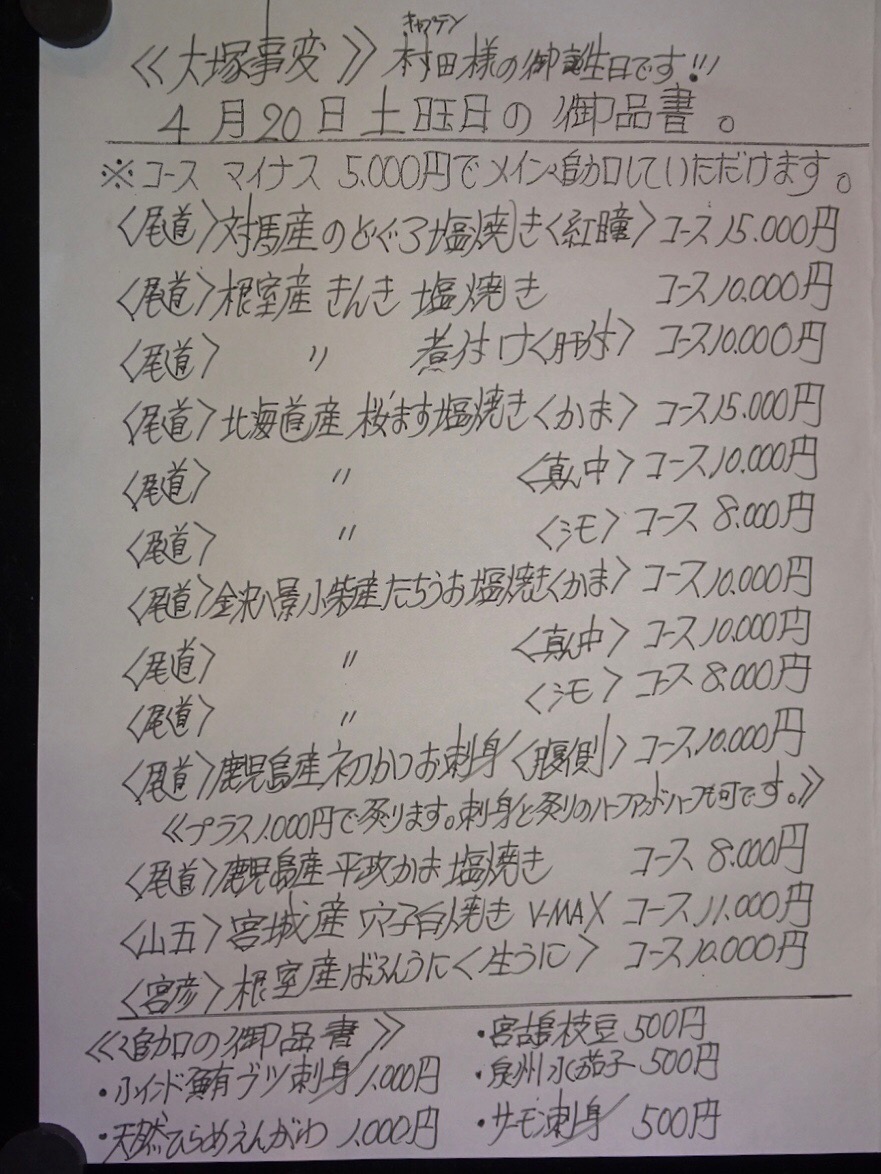 キャプテン
≪大塚事変≫ 村田様の御誕生日です!!!
4月20日土旺日の御品書。
※コース マイナス 5.000円でメイン追加していただけます。
〈尾道〉対馬産のどぐろ塩焼き〈紅瞳〉コース15.000円
〈尾道〉根室産きんき 塩焼き コース10.000円
〈尾道〉 〃 煮付け〈肝付〉コース10.000円
〈尾道〉北海道産桜ます塩焼き〈かま〉コース15.000円
〈尾道〉 〃 〈真ん中〉コース10.000円
〈尾道〉 〃 〈シモ〉コース 8.000円
〈尾道〉金沢八景小柴産たちうお塩焼き〈かま〉コース10.000円
〈尾道〉 〃 〈真ん中〉コース10.000円
〈尾道〉 〃 〈シモ〉コース 8.000円
〈尾道〉鹿児島産初かつお刺身〈腹側〉コース10.000円
≪プラス1.000円で炙ります。刺身と炙りのハーフアンドハーフも可です。≫
〈尾道〉鹿児島産平政かま塩焼き コース 8.000円
〈山五〉宮城産 穴子白焼き V-MAX コース11.000円
〈宮彦〉根室産ばふんうに〈生うに〉 コース10.000円
≪追加の御品書≫
・インド鮪ブツ刺身 1.000円
・天然ひらめえんがわ 1.000円
・宮古島枝豆 500円
・泉州水茄子 500円
・サーモン刺身 500円